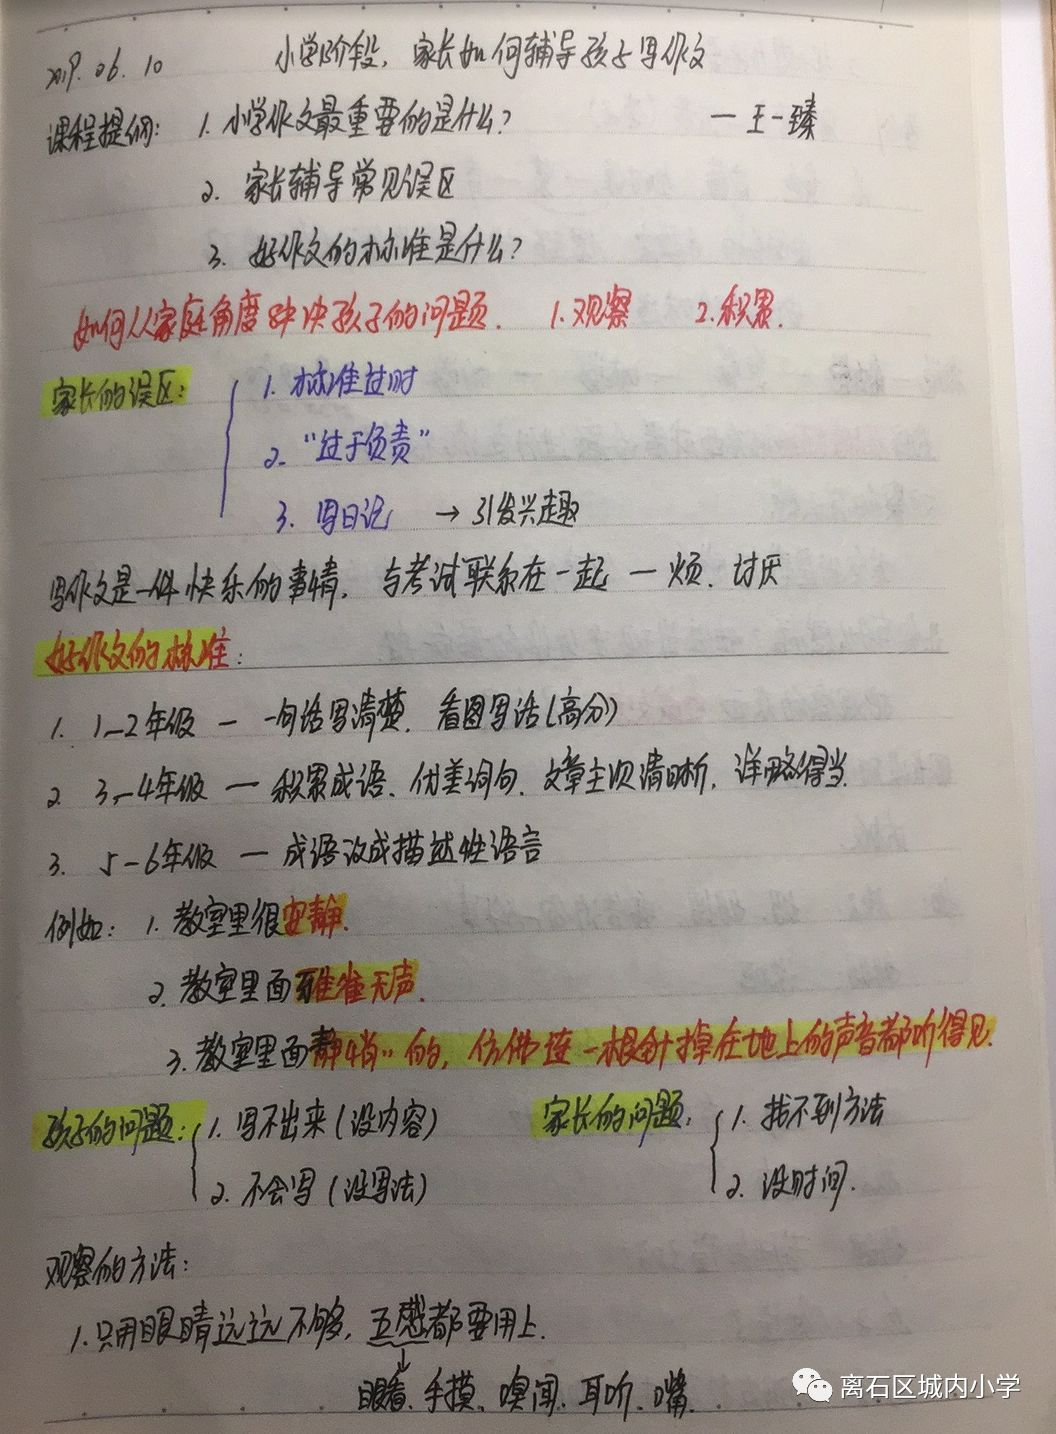 2019.06.10 小学阶段，家长如何辅导孩子写作文
课程提纲： 1. 小学作文最重要的是什么？ — 王一臻
2. 家长辅导常见误区
3. 好作文的标准是什么？
如何从家庭角度解决孩子的问题. 1.观察 2.积累.
家长的误区： 1. 标准过时
2. “过于负责”
3. 写日记 → 引发兴趣
写作文是一件快乐的事情， 与考试联系在一起 — 烦、讨厌
好作文的标准：
1. 1—2年级 — 一句话写清楚、看图写话（高分）
2. 3—4年级 — 积累成语、优美词句、文章主次清晰，详略得当.
3. 5-6年级 — 成语改成描述性语言
例如： 1. 教室里很安静.
2. 教室里面鸦雀无声.
3. 教室里面静悄悄的，仿佛连一根针掉在地上的声音都听得见.
孩子的问题： 1. 写不出来（没内容） 家长的问题： 1. 找不到方法
2. 不会写（没写法） 2. 没时间.
观察的方法：
1. 只用眼睛远远不够，五感都要用上.
↓
眼看、手摸、嗅闻、耳听、嘴.
离石区城内小学